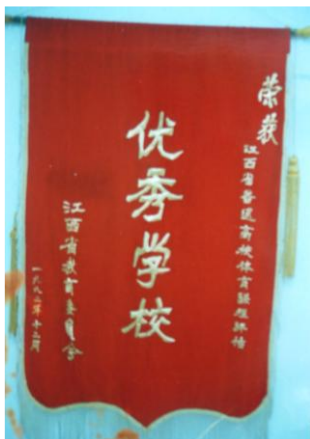 荣获
江西省普通高校体育课程评估
优秀学校
江西省教育委员会
一九九二年十二月